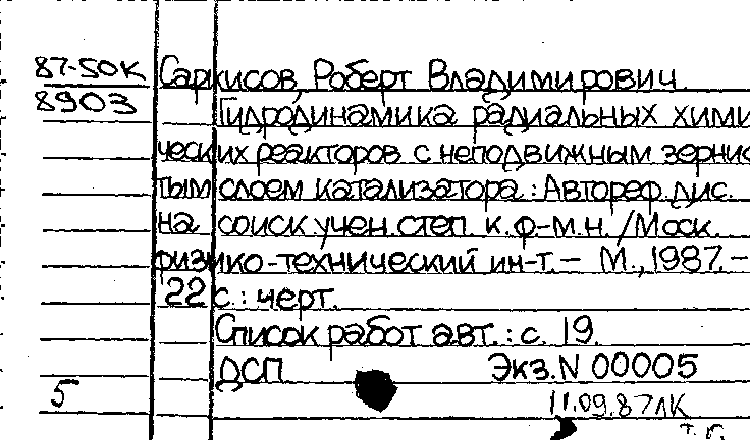 87-50К Саркисов, Роберт Владимирович
8903 Гидродинамика радиальных хими
ческих реакторов с неподвижным зернис
тым слоем катализатора.: Автореф. дис.
на соиск учен. степ. к. ф-м.н. /Моск.
физико-технический ин-т. – М., 1987. –
22 с.: черт.
Список работ авт.: с. 19.
ДСП Экз. N 00005
5 11.09.87 ЛК